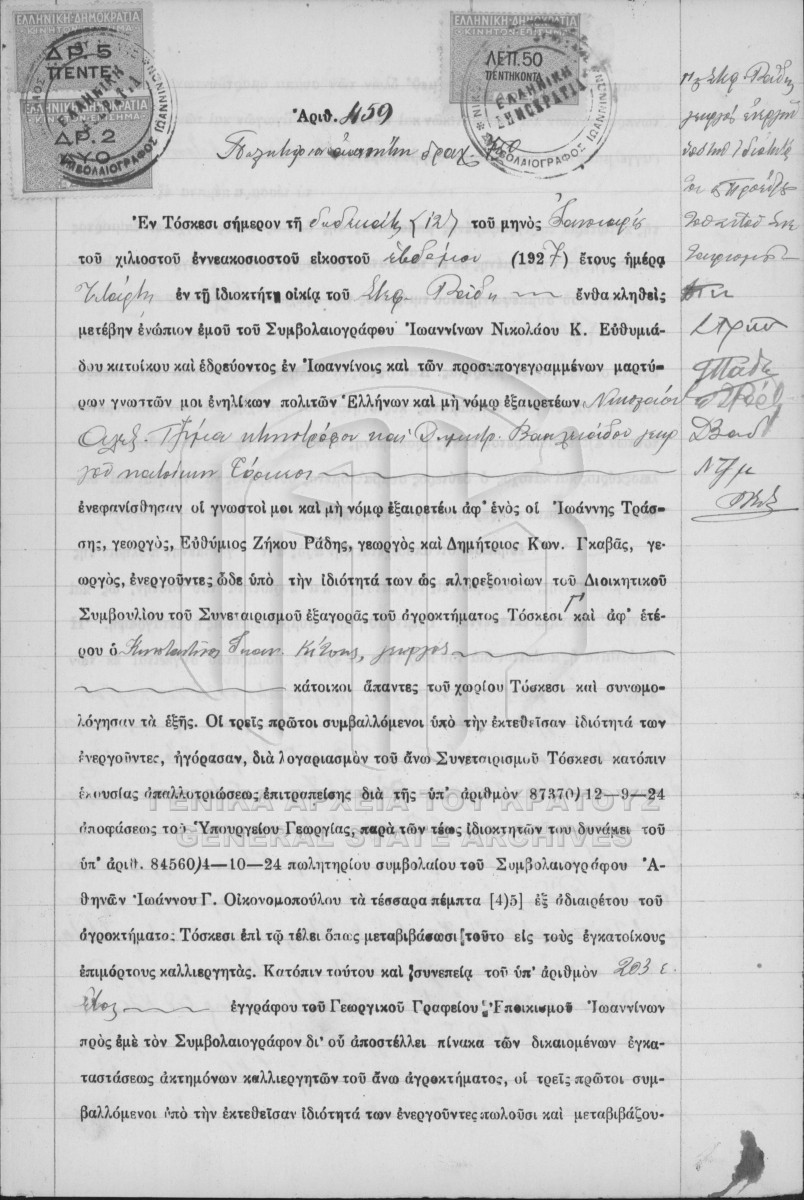 ΕΛΛΗΝΙΚΗ·ΔΗΜΟΚΡΑΤΙΑ
ΚΙΝΗΤΟΝ ΕΠΙΣΗΜΑ
ΔΡ. 5
ΠΕΝΤΕ
ΔΡ. 2
ΔΥΟ
ΕΛΛΗΝΙΚΗ·ΔΗΜΟΚΡΑΤΙΑ
ΚΙΝΗΤΟΝ ΕΠΙΣΗΜΑ
ΛΕΠ. 50
ΠΕΝΤΗΚΟΝΤΑ
ΕΛΛΗΝΙΚΗ
ΔΗΜΟΚΡΑΤΙΑ
ΣΥΜΒΟΛΑΙΟΓΡΑΦΟΣ ΙΩΑΝΝΙΝΩΝ
Ἀριθ. 459
δραχ.
Ἐν Τόσκεσι σήμερον τῇ δωδεκάτῃ (12) τοῦ μηνὸς Ἰανουαρίου
τοῦ χιλιοστοῦ ἐννεακοσιοστοῦ εἰκοστοῦ ἑβδόμου (1927) ἔτους ἡμέρᾳ
Τετάρτῃ ἐν τῇ ἰδιοκτήτῳ οἰκίᾳ τοῦ Στεφ. Ράδη ἔνθα κληθεὶς
μετέβην ἐνώπιον ἐμοῦ τοῦ Συμβολαιογράφου Ἰωαννίνων Νικολάου Κ. Εὐθυμιά-
δου κατοίκου καὶ ἑδρεύοντος ἐν Ἰωαννίνοις καὶ τῶν προσυπογεγραμμένων μαρτύ-
ρων γνωστῶν μοι ἐνηλίκων πολιτῶν Ἑλλήνων καὶ μὴ νόμῳ ἐξαιρετέων Νικολάου
Ἀλεξ. Τζίμα κτηνοτρόφου καὶ Δημητρ.
κατοίκων
ἐνεφανίσθησαν οἱ γνωστοί μοι καὶ μὴ νόμῳ ἐξαιρετέοι ἀφ' ἑνὸς οἱ Ἰωάννης Τράσ-
σης, γεωργός, Εὐθύμιος Ζήκου Ράδης, γεωργὸς καὶ Δημήτριος Κων. Γκαβᾶς, γε-
ωργός, ἐνεργοῦντες ὧδε ὑπὸ τὴν ἰδιότητά των ὡς πληρεξουσίων τοῦ Διοικητικοῦ
Συμβουλίου τοῦ Συνεταιρισμοῦ ἐξαγορᾶς τοῦ ἀγροκτήματος Τόσκεσι Γ καὶ ἀφ' ἑτέ-
ρου ὁ Κωνσταντῖνος Ἰωαν. Κίτσης, γεωργὸς
κάτοικοι ἅπαντες τοῦ χωρίου Τόσκεσι καὶ συνωμο-
λόγησαν τὰ ἑξῆς. Οἱ τρεῖς πρῶτοι συμβαλλόμενοι ὑπὸ τὴν ἐκτεθεῖσαν ἰδιότητά των
ἐνεργοῦντες, ἠγόρασαν, διὰ λογαριασμὸν τοῦ ἄνω Συνεταιρισμοῦ Τόσκεσι κατόπιν
ἑκουσίας ἀπαλλοτριώσεως ἐπιτραπείσης διὰ τῆς ὑπ' ἀριθμὸν 87370)12—9—24
ἀποφάσεως τοῦ Ὑπουργείου Γεωργίας, παρὰ τῶν τέως ἰδιοκτητῶν του δυνάμει τοῦ
ὑπ' ἀριθ. 84560)4—10—24 πωλητηρίου συμβολαίου τοῦ Συμβολαιογράφου Ἀ-
θηνῶν Ἰωάννου Γ. Οἰκονομοπούλου τὰ τέσσαρα πέμπτα [4)5] ἐξ ἀδιαιρέτου τοῦ
ἀγροκτήματος Τόσκεσι ἐπὶ τῷ τέλει ὅπως μεταβιβάσωσι τοῦτο εἰς τοὺς ἐγκατοίκους
ἐπιμόρτους καλλιεργητάς. Κατόπιν τούτου καὶ συνεπείᾳ τοῦ ὑπ' ἀριθμὸν 203 ἐ.
ἔτος ἐγγράφου τοῦ Γεωργικοῦ Γραφείου Ἐποικισμοῦ Ἰωαννίνων
πρὸς ἐμὲ τὸν Συμβολαιογράφον δι' οὗ ἀποστέλλει πίνακα τῶν δικαιομένων ἐγκα-
ταστάσεως ἀκτημόνων καλλιεργητῶν τοῦ ἄνω ἀγροκτήματος, οἱ τρεῖς πρῶτοι συμ-
βαλλόμενοι ὑπὸ τὴν ἐκτεθεῖσαν ἰδιότητά των ἐνεργοῦντες πωλοῦσι καὶ μεταβιβάζου-
Γ Στεφ. Ράδης
γεωργὸς
ΓΕΝΙΚΑ ΑΡΧΕΙΑ ΤΟΥ ΚΡΑΤΟΥΣ
GENERAL STATE ARCHIVES